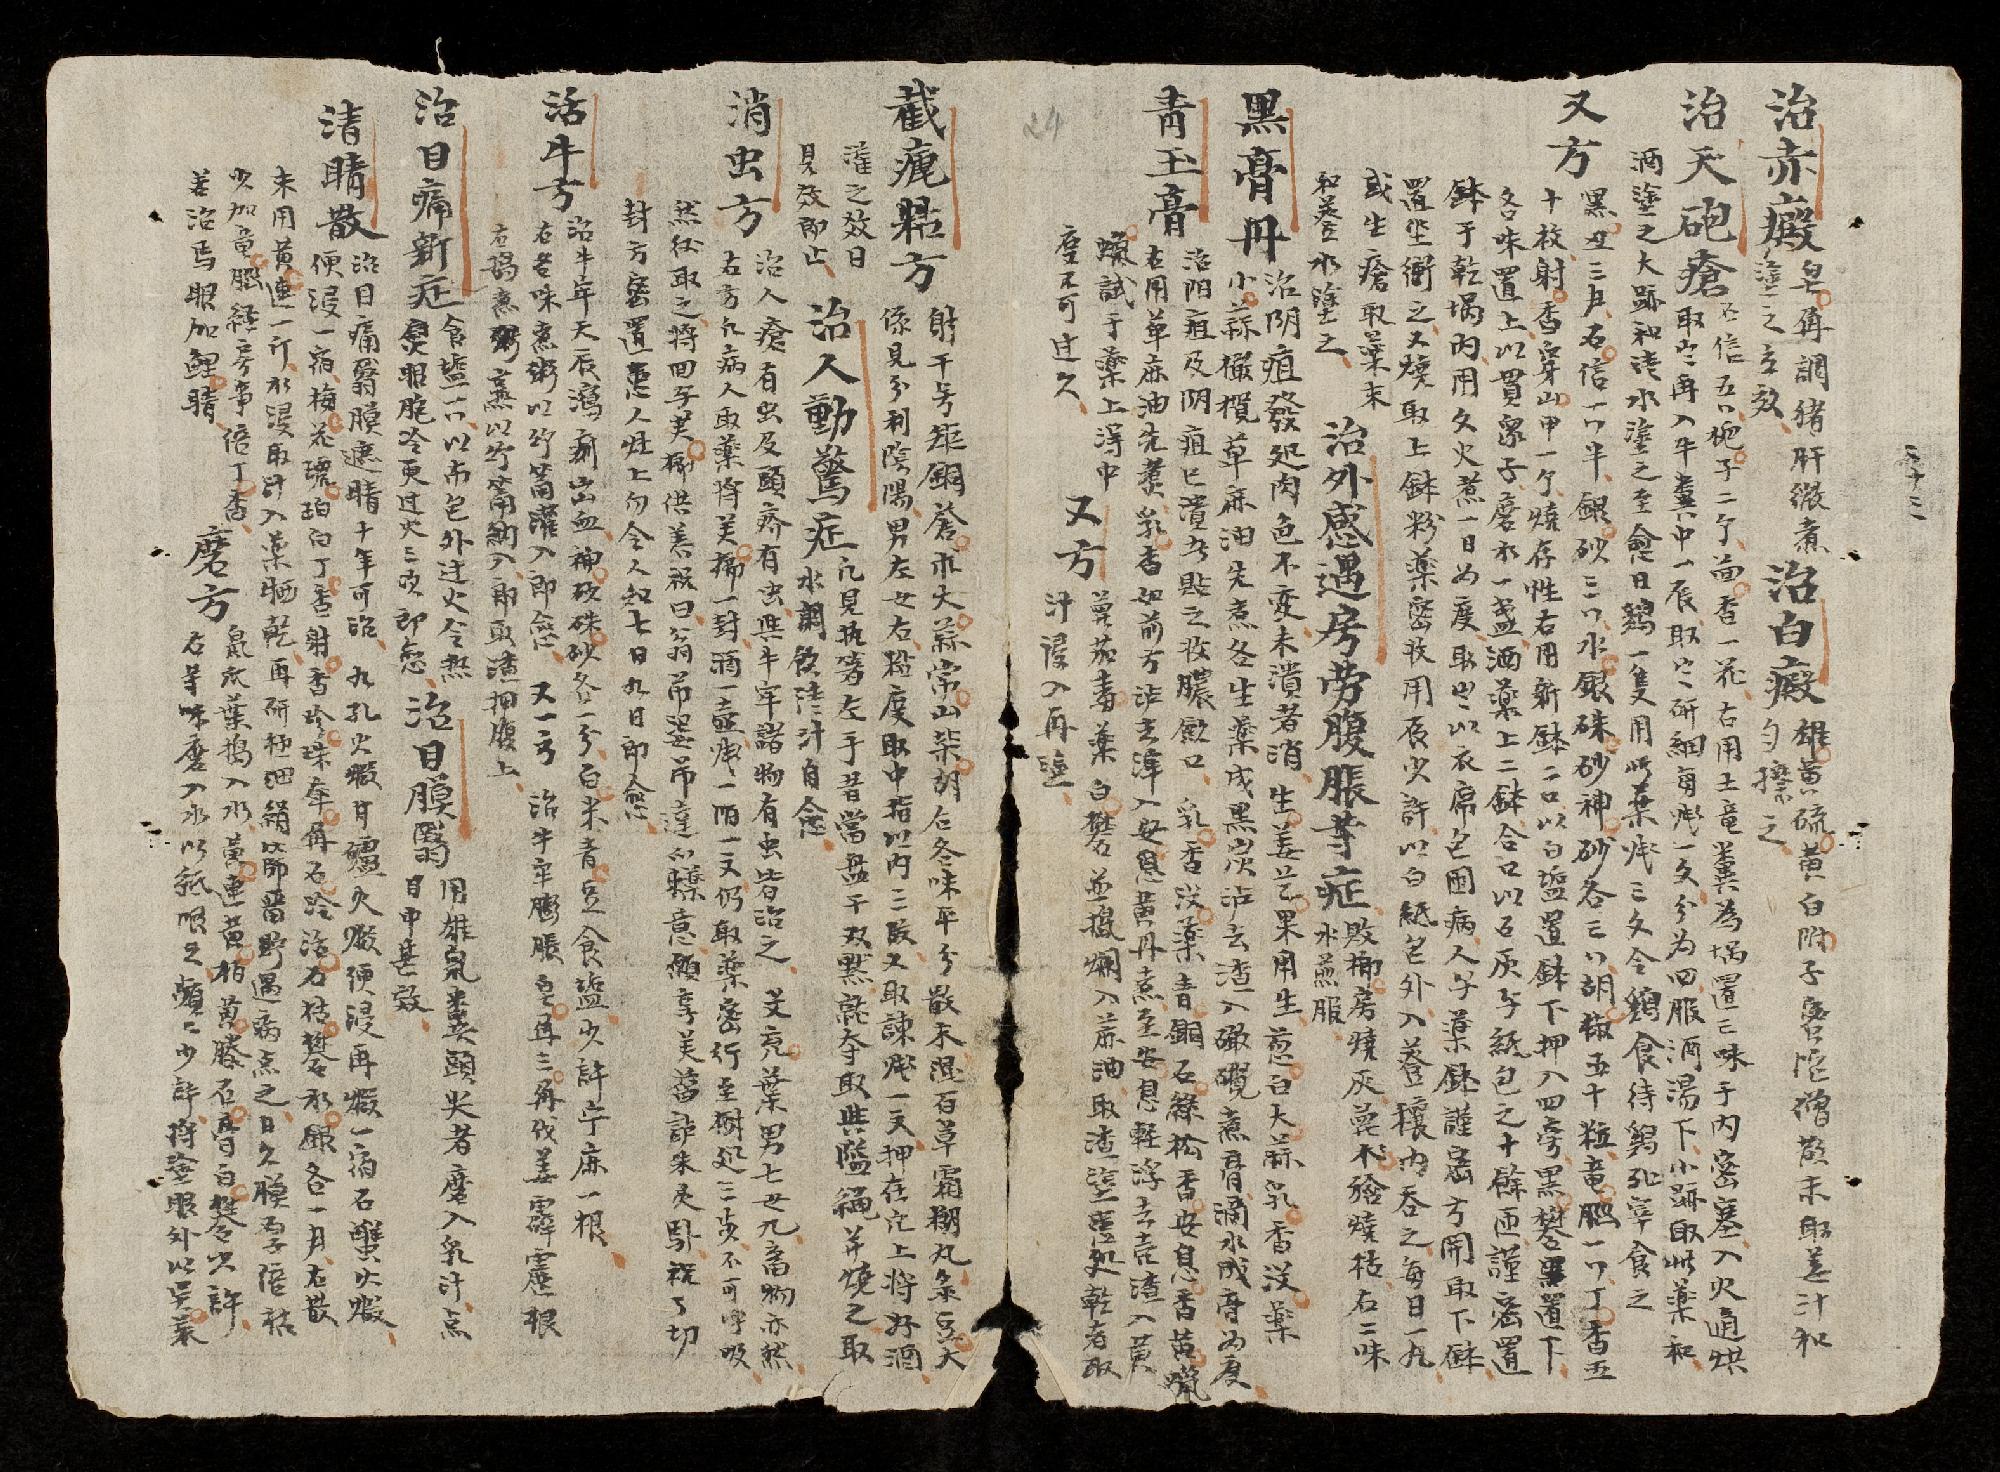 治赤癜 皂角調猪肝微煮 治白癜 雄黄硫黄白附子密陀僧散末取姜汁和
塗之立效 勻擦之
治天砲瘡 石信五分枙子二个茴香一花右用土竜糞為堝置三味于内密塞入火通烘
取出再入牛糞中一辰取出研細每服一文分為四服酒湯下小跡取此藥和
酒塗之大跡和淺水塗之至愈日鷄一隻用此藥 三文令鷄食待鷄死宰食之
又方 黒丑三片石信一分半銀砂三分水銀硃砂神砂各三分胡椒五十粒竜腦一分丁香五
十枚射香穿山甲一个燒存性右用新鉢二口以白塩置鉢下押入四旁黒礬置下
各味置上以貫衆子磨水一盞洒藥上二鉢合口以石灰与紙包之十餘匝謹密置
鉢于乾堝内用文火煮一日為度取出以衣席包困病人子藥鉢謹密方開取下鉢
置坐衝之又燒取上鉢粉藥密收用辰少許以白紙包外入簦穰内吞之每日一丸
或生瘡取藥末 治外感遇房劳腹脹等症 敗榔房燒灰蓖木 燒枯右二味
和簦水塗之 水煎服
黒膏丹 治阴疽發処肉色不変未潰者消 生姜芒果用生葱白大蒜乳香没藥
小蒜橄欖草麻油先煮各生藥成黒炭沾去渣入橄欖煮膏滴水成膏為度
青玉膏 治阳疽及阴疽已潰者貼之收膿歛口 乳香没藥青銅石綠松香安息香黄蝋
右用草麻油先煑乳香如前方沾去渣入安息黄丹煮至安息軽浮去壳渣入黄
蝋試于藥上得中 又方 蓖茄毒藥白礬並搗爛入蔴油取渣塗患処乾者取
度不可过久 汁浸入再塗
24
截瘧點方 射干 銅 大蒜常山柴胡右各味平分散末混百草霜糊丸菉豆大
係見分利陰陽男左女右 度取中指以内二 又取諫 一文押在 上將好酒
灌之效日 治人動驚症 凡見執箸左手昔當盐于双 取與隘 并燒之取
見效即止 水調飲淺汁自愈
消虫方 治人瘡有虫及頭疥有虫與牛牢諸物有虫皆治之 芙 葉男七女九畜物亦然
右方凡病人取藥將芙榔一封酒一壺 一陌一文仍取藥密行至樹処三步不可呼吸
然後取之將四字芙榔供善祝曰翁吊婆吊達 意願享芙蒥 朱灵馭祝了切
封方密置患人灶上勿令人知七日九日即愈
活牛方 治牛年天辰瀉痢出血神砂硃砂各一分白米青豆食塩少許苧麻一根
右各味煮粥以竹筩灌入即愈 又一方 治牛牢膨脹皂角三角伐姜霹靂根
右湯煮粥 以竹筩納入即取渣押腹上
治目痛新症 食塩一分以布包外过火令熱 治目膜翳 用雄䑕糞頭尖者磨入乳汁点
炙眼胞冷更过火三次即愈 目中甚效
清睛散 治目痛翳膜遮睛十年可治 九孔火煆甘爐火煆便浸再煆一宿石蟹火煆
便浸一宿梅花琥珀白丁香射香珍珠 角石冷活石枯礬水銀各一片右散
末用黄連一斤水浸取汁入藥晒乾再研極細絹篩畨野遇病点之日久膜厚子倍枯
少加竜腦経房事倍丁香 磨方 䑕 葉搗入水黄連黄栢黄滕石膏白礬少許
善治馬眼加鯉睛 右等味磨入水以紙浸之頻々少許將塗眼外以吴茱